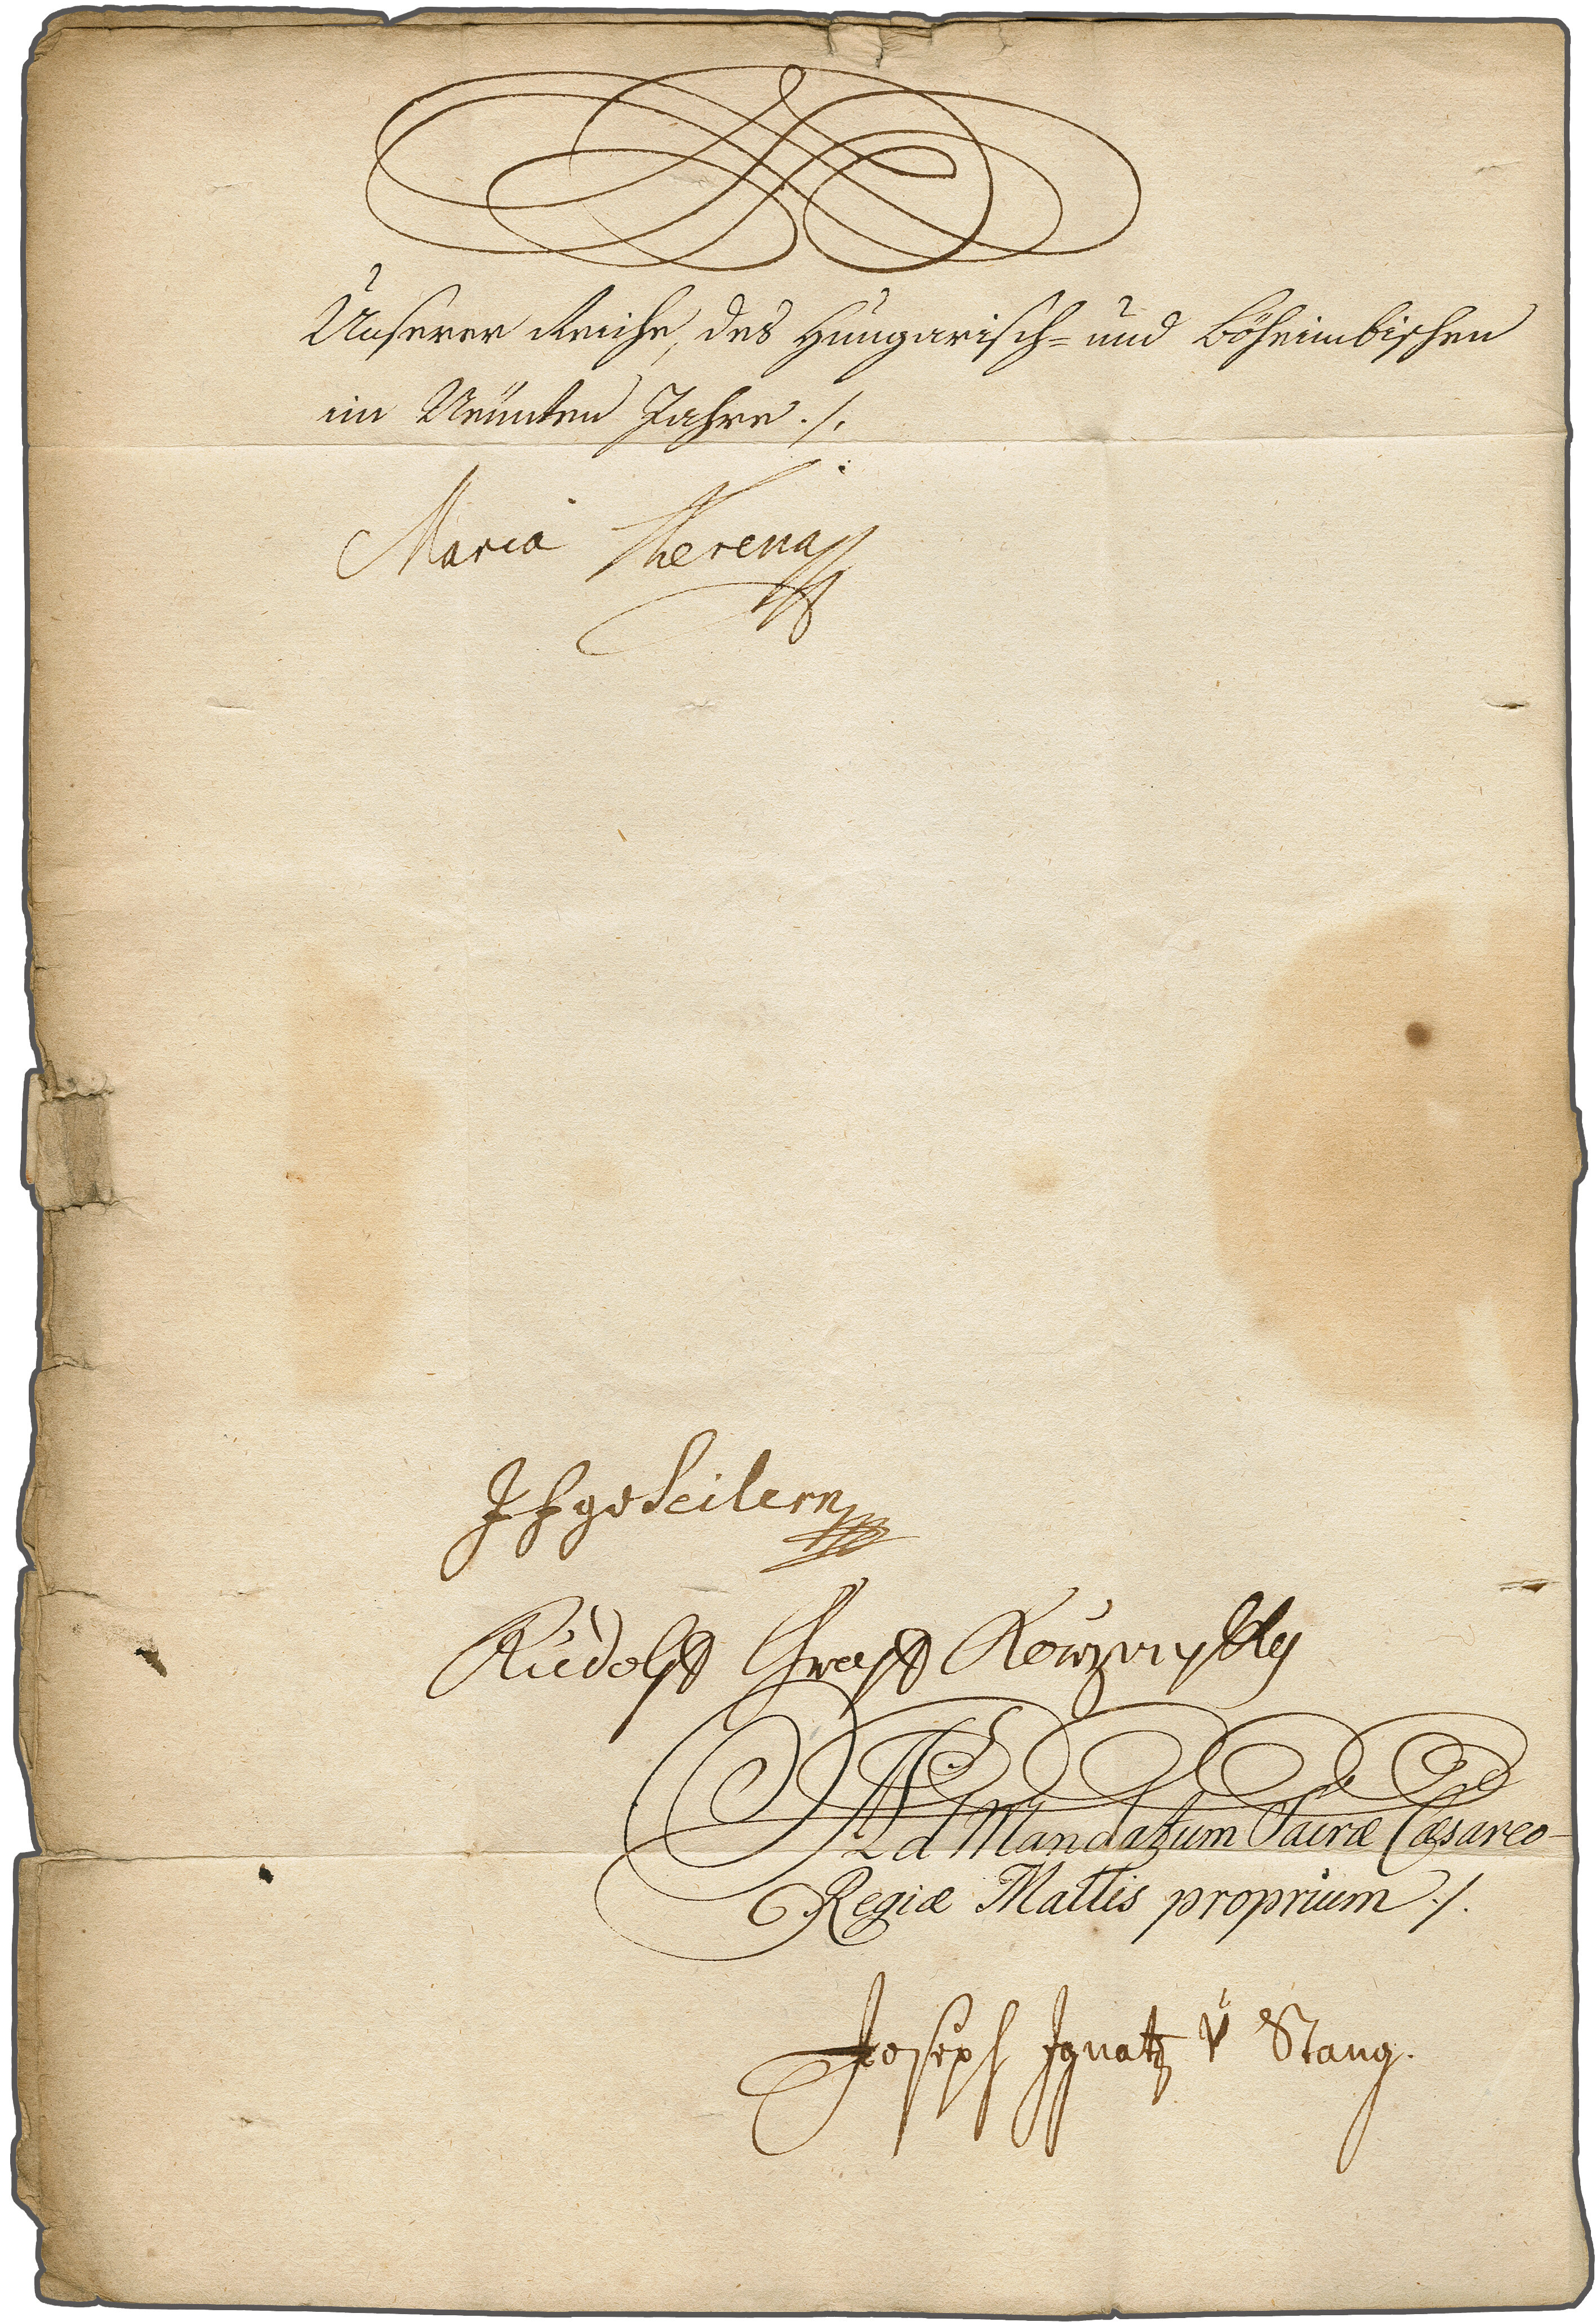 Unserer Reiche, des Hungarisch- und Böheimbischen
im Neünten Jahre ./.
Maria Theresia
Seilern
Rudolph Graff Korzensky
Ad Mandatum Sacræ Cæsareo-
Regiæ Mattis proprium ./.
Joseph Ignatz v Stang.